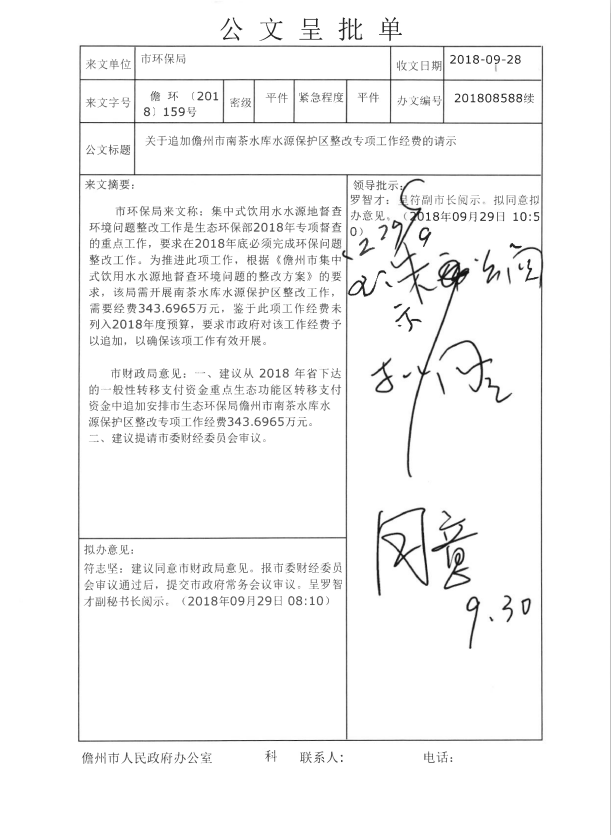 公文呈批单
来文单位 市环保局 收文日期 2018-09-28
来文字号 儋环〔2018〕159号 密级 平件 紧急程度 平件 办文编号 201808588续
公文标题 关于追加儋州市南茶水库水源保护区整改专项工作经费的请示
来文摘要：
市环保局来文称：集中式饮用水水源地督查
环境问题整改工作是生态环保部2018年专项督查
的重点工作，要求在2018年底必须完成环保问题
整改工作。为推进此项工作，根据《儋州市集中
式饮用水水源地督查环境问题的整改方案》的要
求，该局需开展南茶水库水源保护区整改工作，
需要经费343.6965万元，鉴于此项工作经费未
列入2018年度预算，要求市政府对该工作经费予
以追加，以确保该项工作有效开展。
市财政局意见：一、建议从 2018 年省下达
的一般性转移支付资金重点生态功能区转移支付
资金中追加安排市生态环保局儋州市南茶水库水
源保护区整改专项工作经费343.6965万元。
二、建议提请市委财经委员会审议。
领导批示：
罗智才：呈符副市长阅示。拟同意拟
办意见。（2018年09月29日 10:5
0）
29/9
示
同意
9.30
拟办意见：
符志坚：建议同意市财政局意见。报市委财经委员
会审议通过后，提交市政府常务会议审议。呈罗智
才副秘书长阅示。（2018年09月29日 08:10）
儋州市人民政府办公室 科 联系人： 电话：